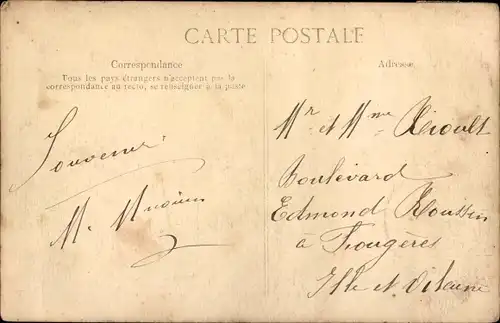 CARTE POSTALE
Correspondance
Tous les pays étrangers n'acceptent pas la
correspondance au recto, se renseigner à la poste
Souvenir
M.
Adresse
Mr et Mme
Boulevard
Edmond Roussin
à Fougères
Ille et Vilaine